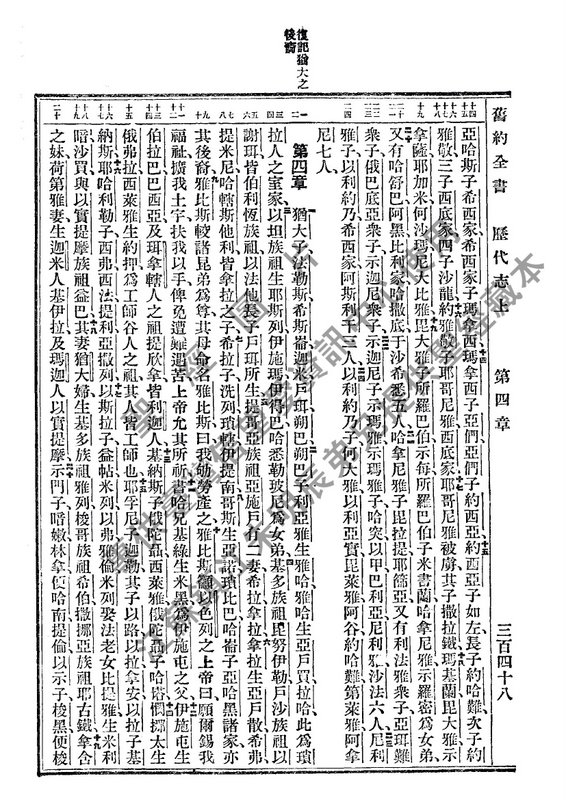 舊約全書　歷代志上　第四章　三百四十八
亞哈斯子希西家希西家子瑪拿西瑪拿西子亞們亞們子約西亞約西亞子如左長子約哈難次子約
雅敬三子西底家四子沙龍約雅敬子耶哥尼雅西底家耶哥尼雅被虜其子撒拉鐵瑪基蘭毘大雅示
拿薩耶加米何沙瑪尼大比雅毘大雅子所羅巴伯示每所羅巴伯子米書蘭哈拿尼雅示羅密爲女弟
又有哈舒巴阿黑比利家哈撒底于沙希悉五人哈拿尼雅子毘拉提耶篩亞又有利法雅衆子亞珥難
衆子俄巴底亞衆子示迦尼衆子示迦尼子示瑪雅示瑪雅子哈突以甲巴利亞尼利雅沙法六人尼利
雅子以利約乃希西家阿斯利干三人以利約乃子何大雅以利亞實毘萊雅阿谷約哈難第萊雅阿拿
尼七人
復記猶大之後裔
第四章　猶大子法勒斯希斯崙迦米戶珥朔巴朔巴子利亞雅生雅哈雅哈生亞戶買拉哈此爲瑣
拉人之室家以坦族祖生耶斯列伊施瑪伊得巴哈悉勒玻尼爲女弟基多族祖毘努伊勒戶沙族祖以
謝珥皆伯利恆族祖以法他長子戶珥所生提哥亞族祖亞施戶二妻希拉拿拉拿拉生亞戶散希弗
提米尼哈轄斯他利皆拿拉之子希拉子洗列瑣轄伊提南哥斯生亞諾瑣比巴哈崙子亞哈黑諸家亦
其後裔雅比斯較諸昆弟爲尊其母命名雅比斯曰我劬勞產之雅比斯籲以色列之上帝曰願爾錫我
福祉擴我土宇扶我以手俾免遭難遇苦上帝允其所祈書哈兄基綠生米黑爲伊施屯之父伊施屯生
伯拉巴巴西亞及珥拿轄人之祖提欣拿皆利迦人基納斯子俄陀聶西萊雅俄陀聶子哈塔憫挪太生
俄弗拉西萊雅生約押爲工師谷人之祖其人皆工師也耶孚尼子迦勒其子以路以拉拿安以拉子基
納斯耶哈利勒子西弗西法提利亞撒列以斯拉子益帖米列以弗雅倫米列娶法老女比提雅生米利
暗沙買與以實提摩族祖益巴其妻猶大婦生基多族祖雅列梭哥族祖希伯撒挪亞族祖耶古鐵拿含
之妹荷第雅妻生迦米人基伊拉及瑪迦人以實提摩示門子暗嫩林拿便哈南提倫以示子梭黑便梭